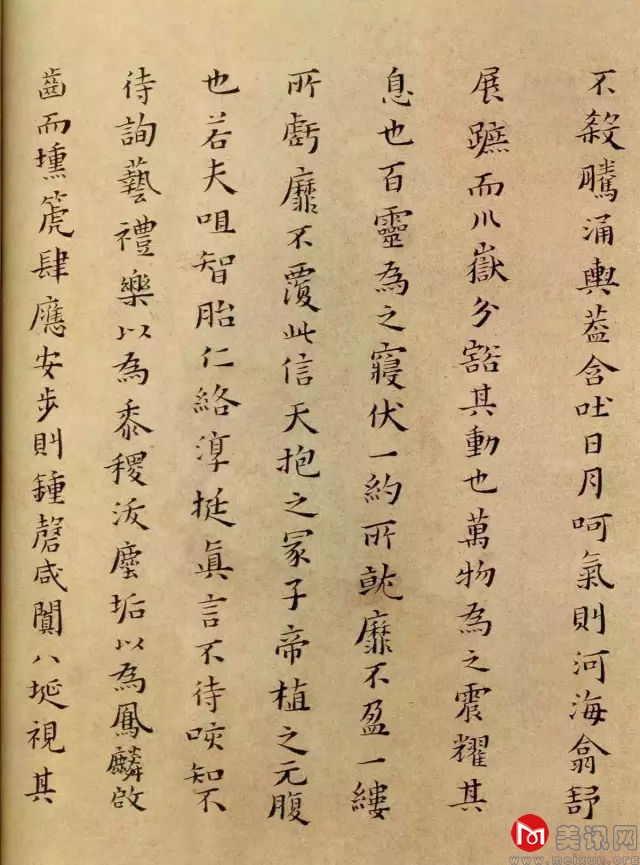 不殺騰涌輿葢含吐日月呵氣則河海翕舒
展蹠而川嶽分豁其動也萬物為之震耀其
息也百靈為之寢伏一約所就靡不盈一縷
所虧靡不覆此信天抱之冢子帝植之元腹
也若夫咀智胎仁絡淳挺眞言不待咳知不
待詢藝禮樂以為黍稷汲塵垢以為鳳麟啟
齒而壎箎肆應安步則鍾磬咸闐八埏視其
美讯网
www.meixun.org